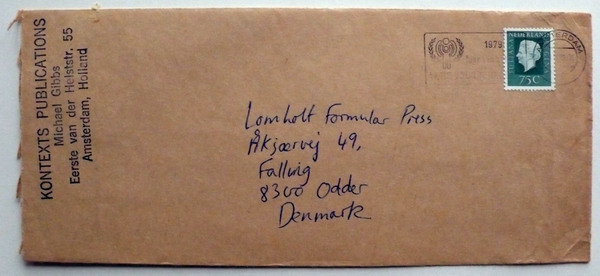 KONTEXTS PUBLICATIONS
Michael Gibbs
Eerste van der Helststr. 55
Amsterdam, Holland
1979:
NEDERLAND
75C
Lomholt Formular Press
Åkjærvej 49,
Falling
8300 Odder
Denmark